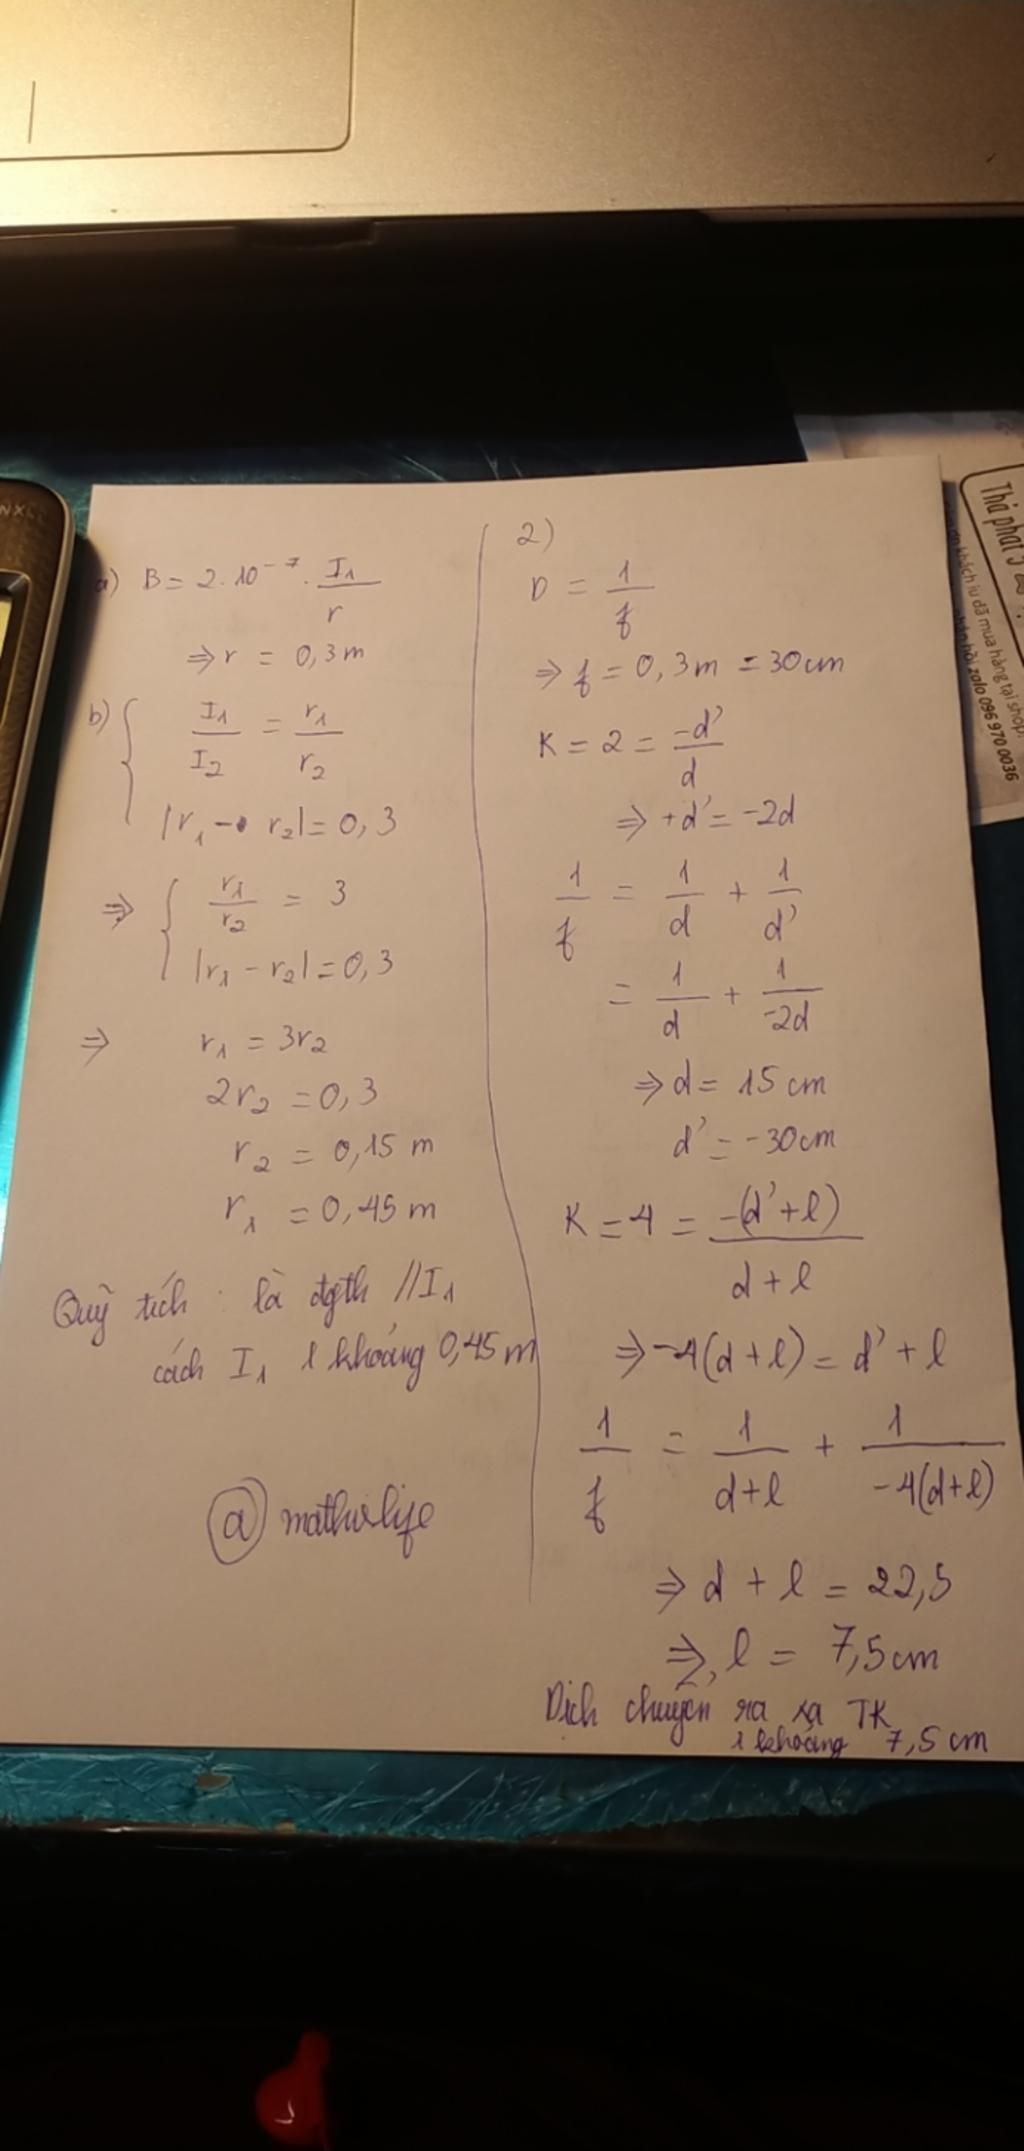 a) B = 2.10⁻⁷. I₁/r
⇒ r = 0,3m
b) { I₁/I₂ = r₁/r₂
|r₁ - r₂| = 0,3
⇒ { r₁/r₂ = 3
|r₁ - r₂| = 0,3
⇒ r₁ = 3r₂
2r₂ = 0,3
r₂ = 0,15 m
r₁ = 0,45 m
Quỹ tích : là đgth // I₁
cách I₁ 1 khoảng 0,45 m
@ mathislife
2)
D = 1/f
⇒ f = 0,3m = 30cm
K = 2 = -d'/d
⇒ +d' = -2d
1/f = 1/d + 1/d'
= 1/d + 1/-2d
⇒ d = 15 cm
d' = -30cm
K = 4 = -(d'+l)/d+l
⇒ -4(d+l) = d' + l
1/f = 1/d+l + 1/-4(d+l)
⇒ d + l = 22,5
⇒ l = 7,5cm
Dịch chuyển ra xa TK
1 khoảng 7,5 cm
Thả phát 5
khách iu đã mua hàng tại shop.
hồi zalo 096 970 0036